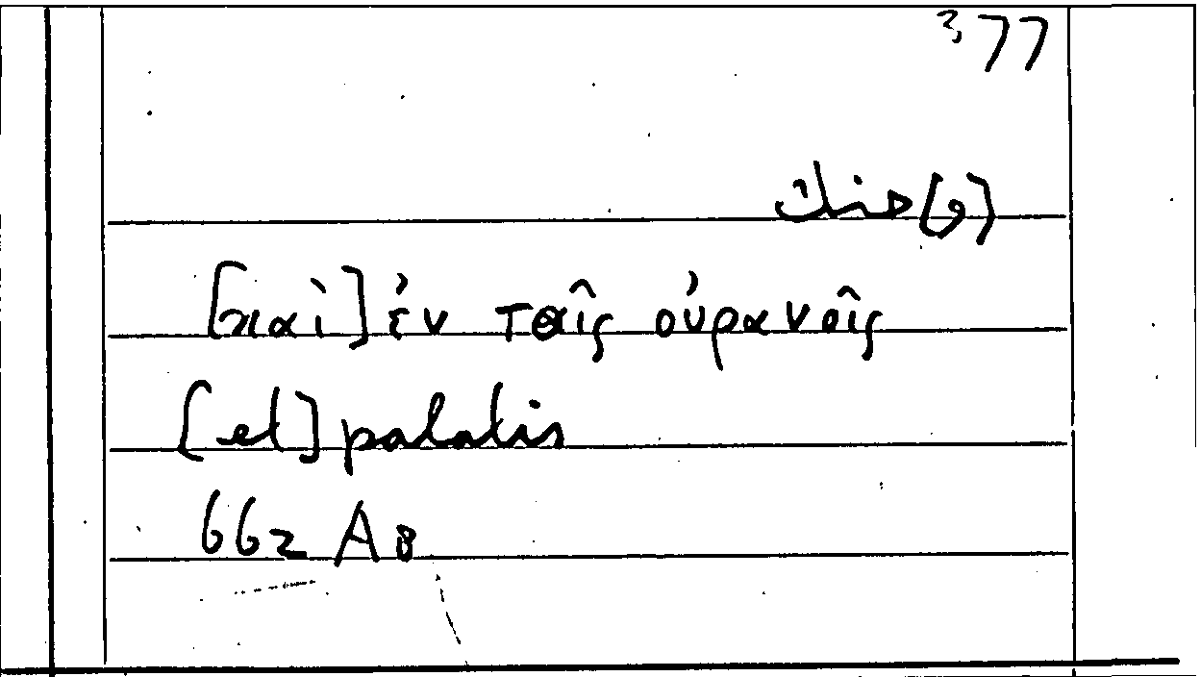 377
(و)حنك
[καὶ] ἐν τοῖς οὐρανοῖς
[et] palatis
662 A8